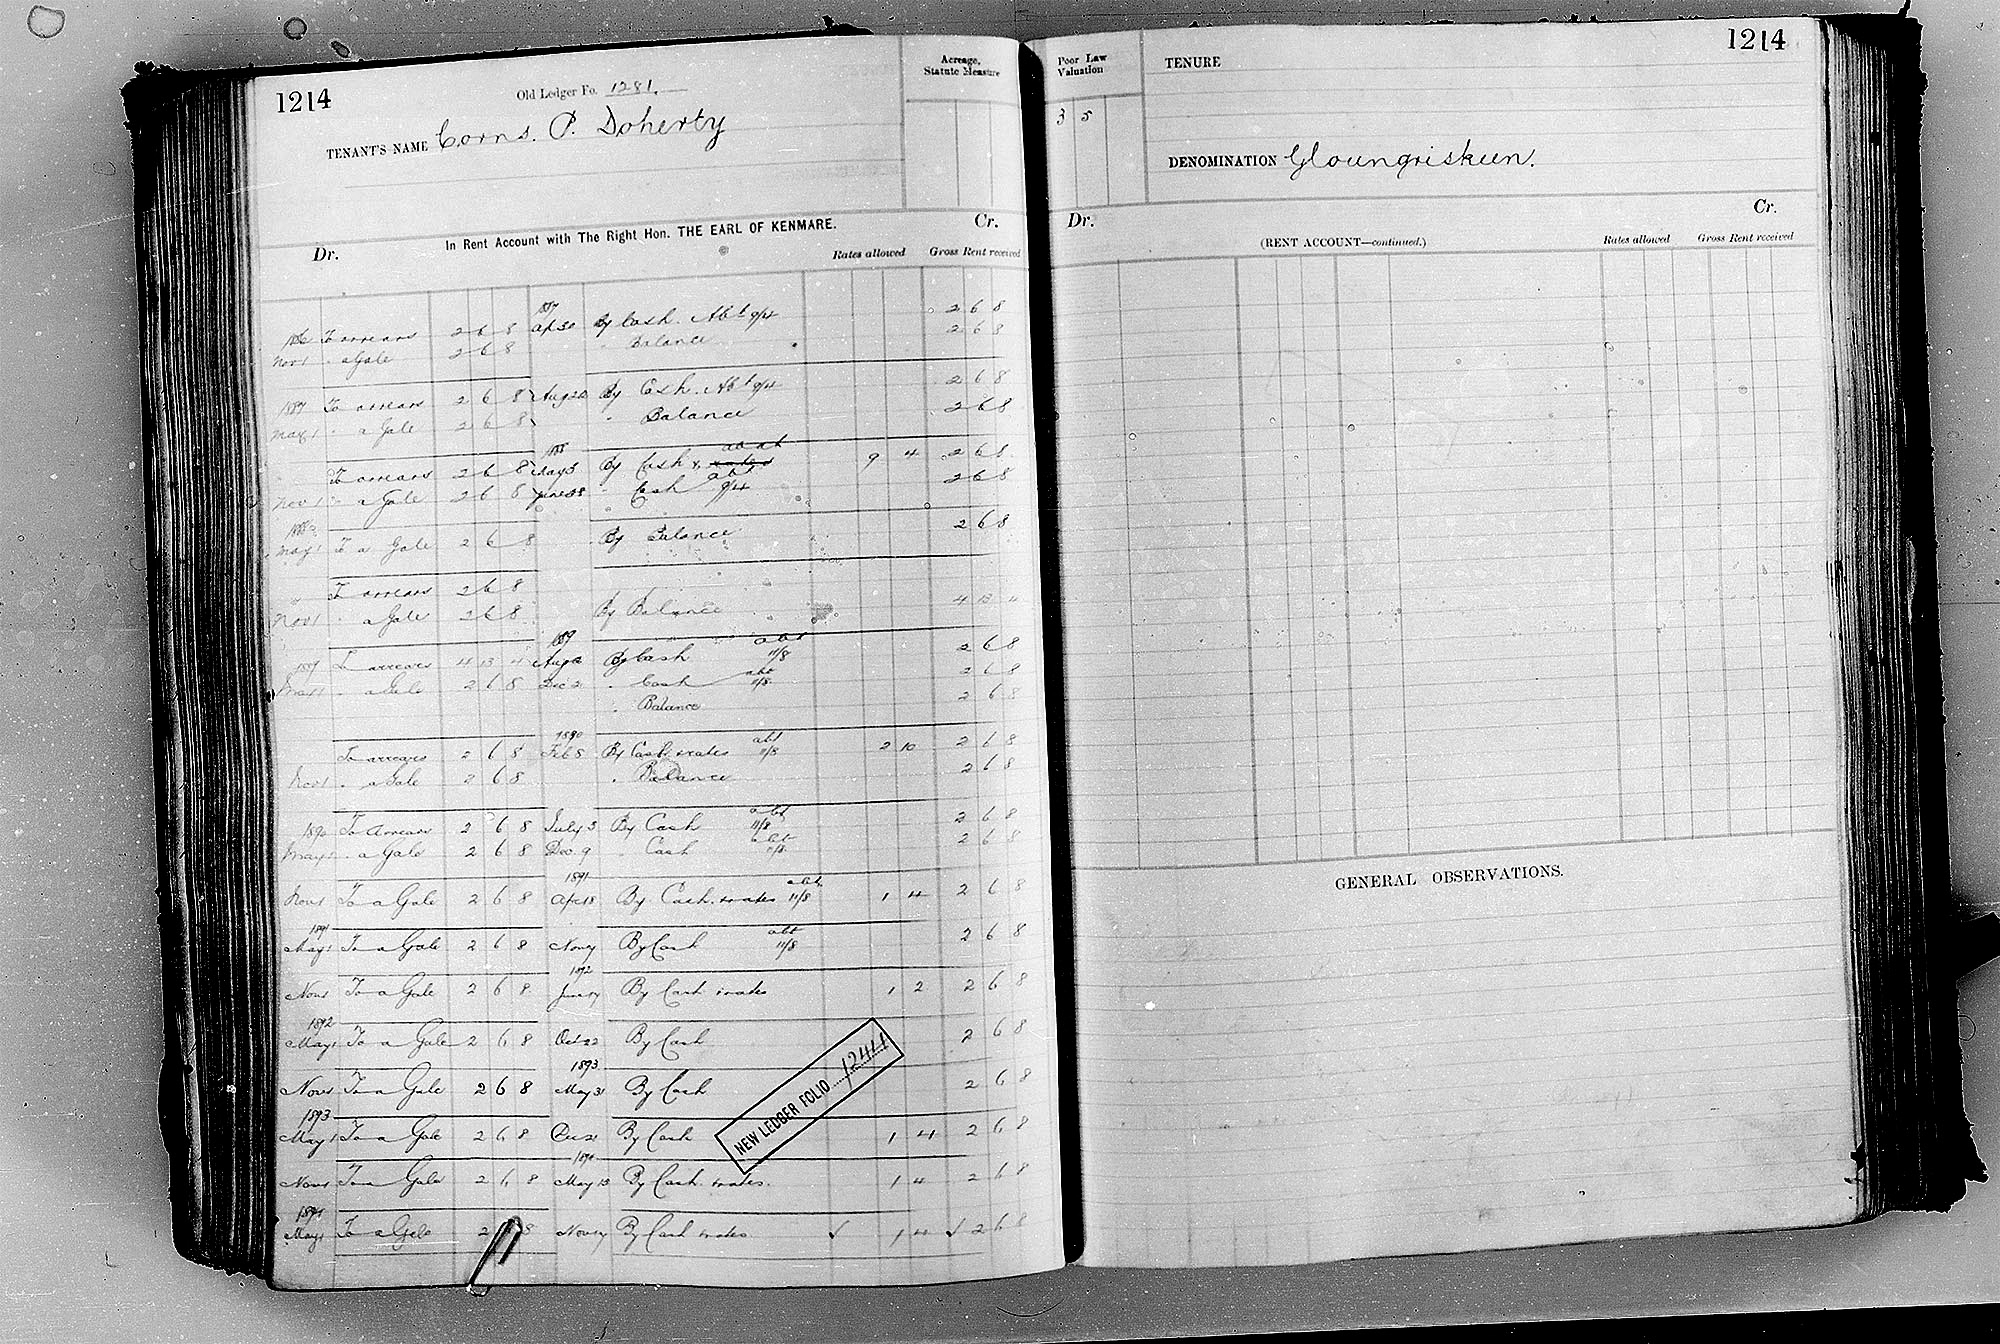 1214
Old Ledger Fo. 1281.
TENANT'S NAME Corns. P. Doherty
Acreage, Statute Measure
In Rent Account with The Right Hon. THE EARL OF KENMARE.
Dr. Cr.
Rates allowed Gross Rent received
1887
1886 To arrears 2 6 8 Ap 30 By Cash. Abt 9/4 2 6 8
Nov 1 " a Gale 2 6 8 " Balance 2 6 8
1887 To arrears 2 6 8 Aug By Cash. Abt 9/4 2 6 8
May 1 " a Gale 2 6 8 " Balance 2 6 8
1888
" To arrears 2 6 8 May 5 By Cash & rates 9 4 2 6 8
Nov 1 " a Gale 2 6 8 June 28 " Cash abt 9/4 2 6 8
1888
May 1 To a Gale 2 6 8 By Balance 2 6 8
" To arrears 2 6 8
Nov 1 " a Gale 2 6 8 By Balance 4 13 4
1889
1889 To arrears 4 13 4 Aug By Cash abt 11/8 2 6 8
May 1 " a Gale 2 6 8 Dec 2 " Cash abt 11/8 2 6 8
" Balance 2 6 8
1890
To arrears 2 6 8 Feb 8 By Cash & rates abt 11/8 2 10 2 6 8
Nov 1 " a Gale 2 6 8 " Balance 2 6 8
1890 To Arrears 2 6 8 July 3 By Cash abt 11/8 2 6 8
May 1 " a Gale 2 6 8 Dec. 9 " Cash abt 11/8 2 6 8
1891
Nov 1 To a Gale 2 6 8 Apl 18 By Cash & rates abt 11/8 1 4 2 6 8
1891
May 1 To a Gale 2 6 8 Nov 7 By Cash abt 11/8 2 6 8
1892
Nov 1 To a Gale 2 6 8 June 7 By Cash & rates 1 2 2 6 8
1892
May 1 To a Gale 2 6 8 Oct 22 By Cash 2 6 8
1893
Nov 1 To a Gale 2 6 8 May 31 By Cash 2 6 8
1893
May 1 To a Gale 2 6 8 Dec 21 By Cash 1 4 2 6 8
1894
Nov 1 To a Gale 2 6 8 May 15 By Cash & rates. 1 4 2 6 8
1894
May 1 To a Gale 2 8 Nov By Cash & rates 1 4 2 6 8
NEW LEDGER FOLIO 1244
Poor Law Valuation
3 5
TENURE
1214
DENOMINATION Gloungriskeen.
Dr. Cr.
(RENT ACCOUNT—continued.) Rates allowed Gross Rent received
GENERAL OBSERVATIONS.